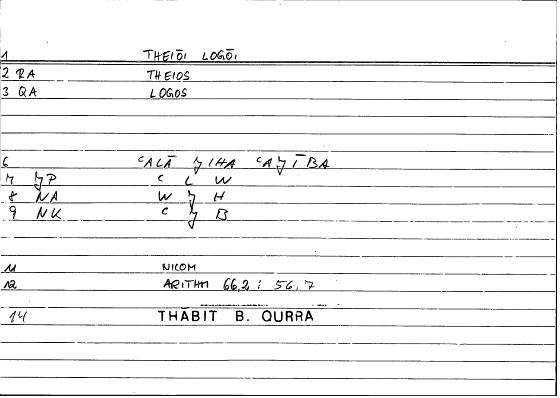 1 THEIŌI LOGŌI
2 RA THEIOS
3 QA LOGOS
6 ʿALĀ ǦIHA ʿAǦĪBA
7 ǦP ʿ L W
8 NA W Ǧ H
9 NK ʿ Ǧ B
11 NICOM
12 ARITHM 66,2 ; 56,7
14 THĀBIT B. QURRA